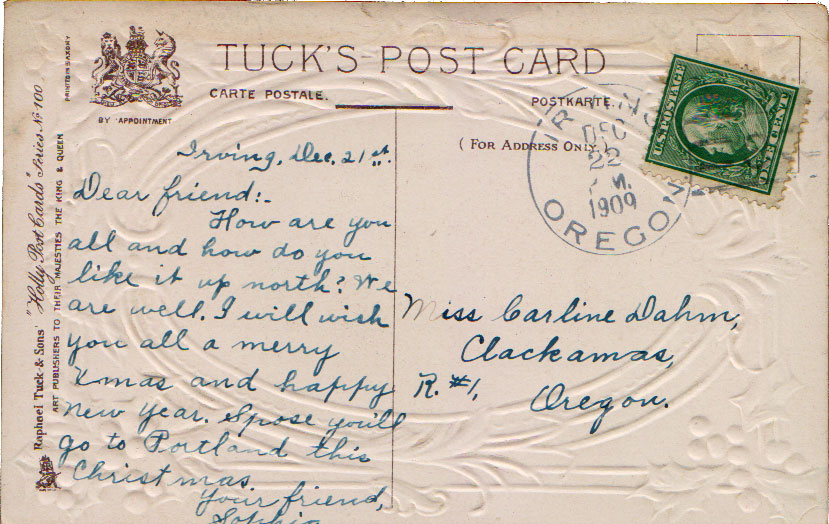 TUCK'S POST CARD
CARTE POSTALE.
POSTKARTE.
BY APPOINTMENT
(FOR ADDRESS ONLY.)
PRINTED IN SAXONY
Raphael Tuck & Sons' "Holly Post Cards" Series No 100
ART PUBLISHERS TO THEIR MAJESTIES THE KING & QUEEN
Irving, Dec. 21st.
Dear friend:-
How are you
all and how do you
like it up north? We
are well. I will wish
you all a merry
Xmas and happy
New Year. Spose you'll
go to Portland this
Christmas
Your friend,
Sophia
IRVING
DEC
22
M.
1909
OREGON
U.S. POSTAGE
Miss Carline Dahm,
Clackamas,
R. #1, Oregon.